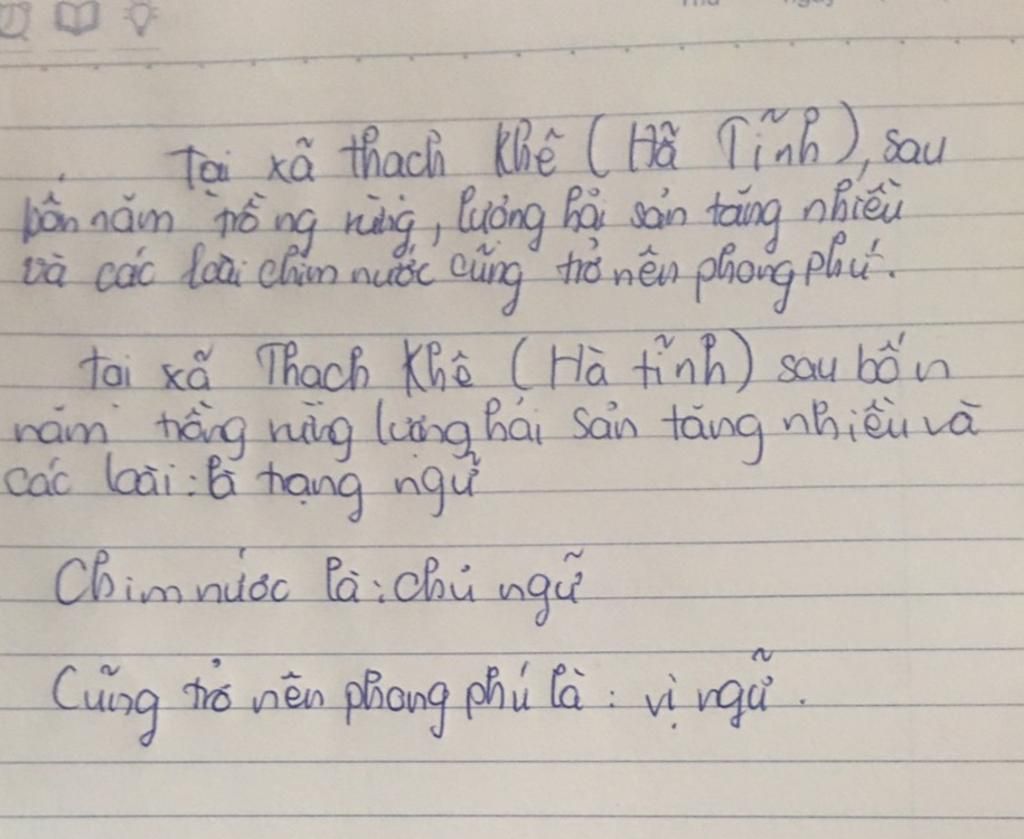 Tại xã thạch Khê (Hà Tĩnh), sau
bốn năm trồng rừng, lượng hải sản tăng nhiều
và các loài chim nước cũng trở nên phong phú.
tại xã Thạch Khê (Hà tĩnh) sau bốn
năm trồng rừng lượng hải sản tăng nhiều và
các loài: là trạng ngữ
Chim nước là: chủ ngữ
Cũng trở nên phong phú là: vị ngữ.